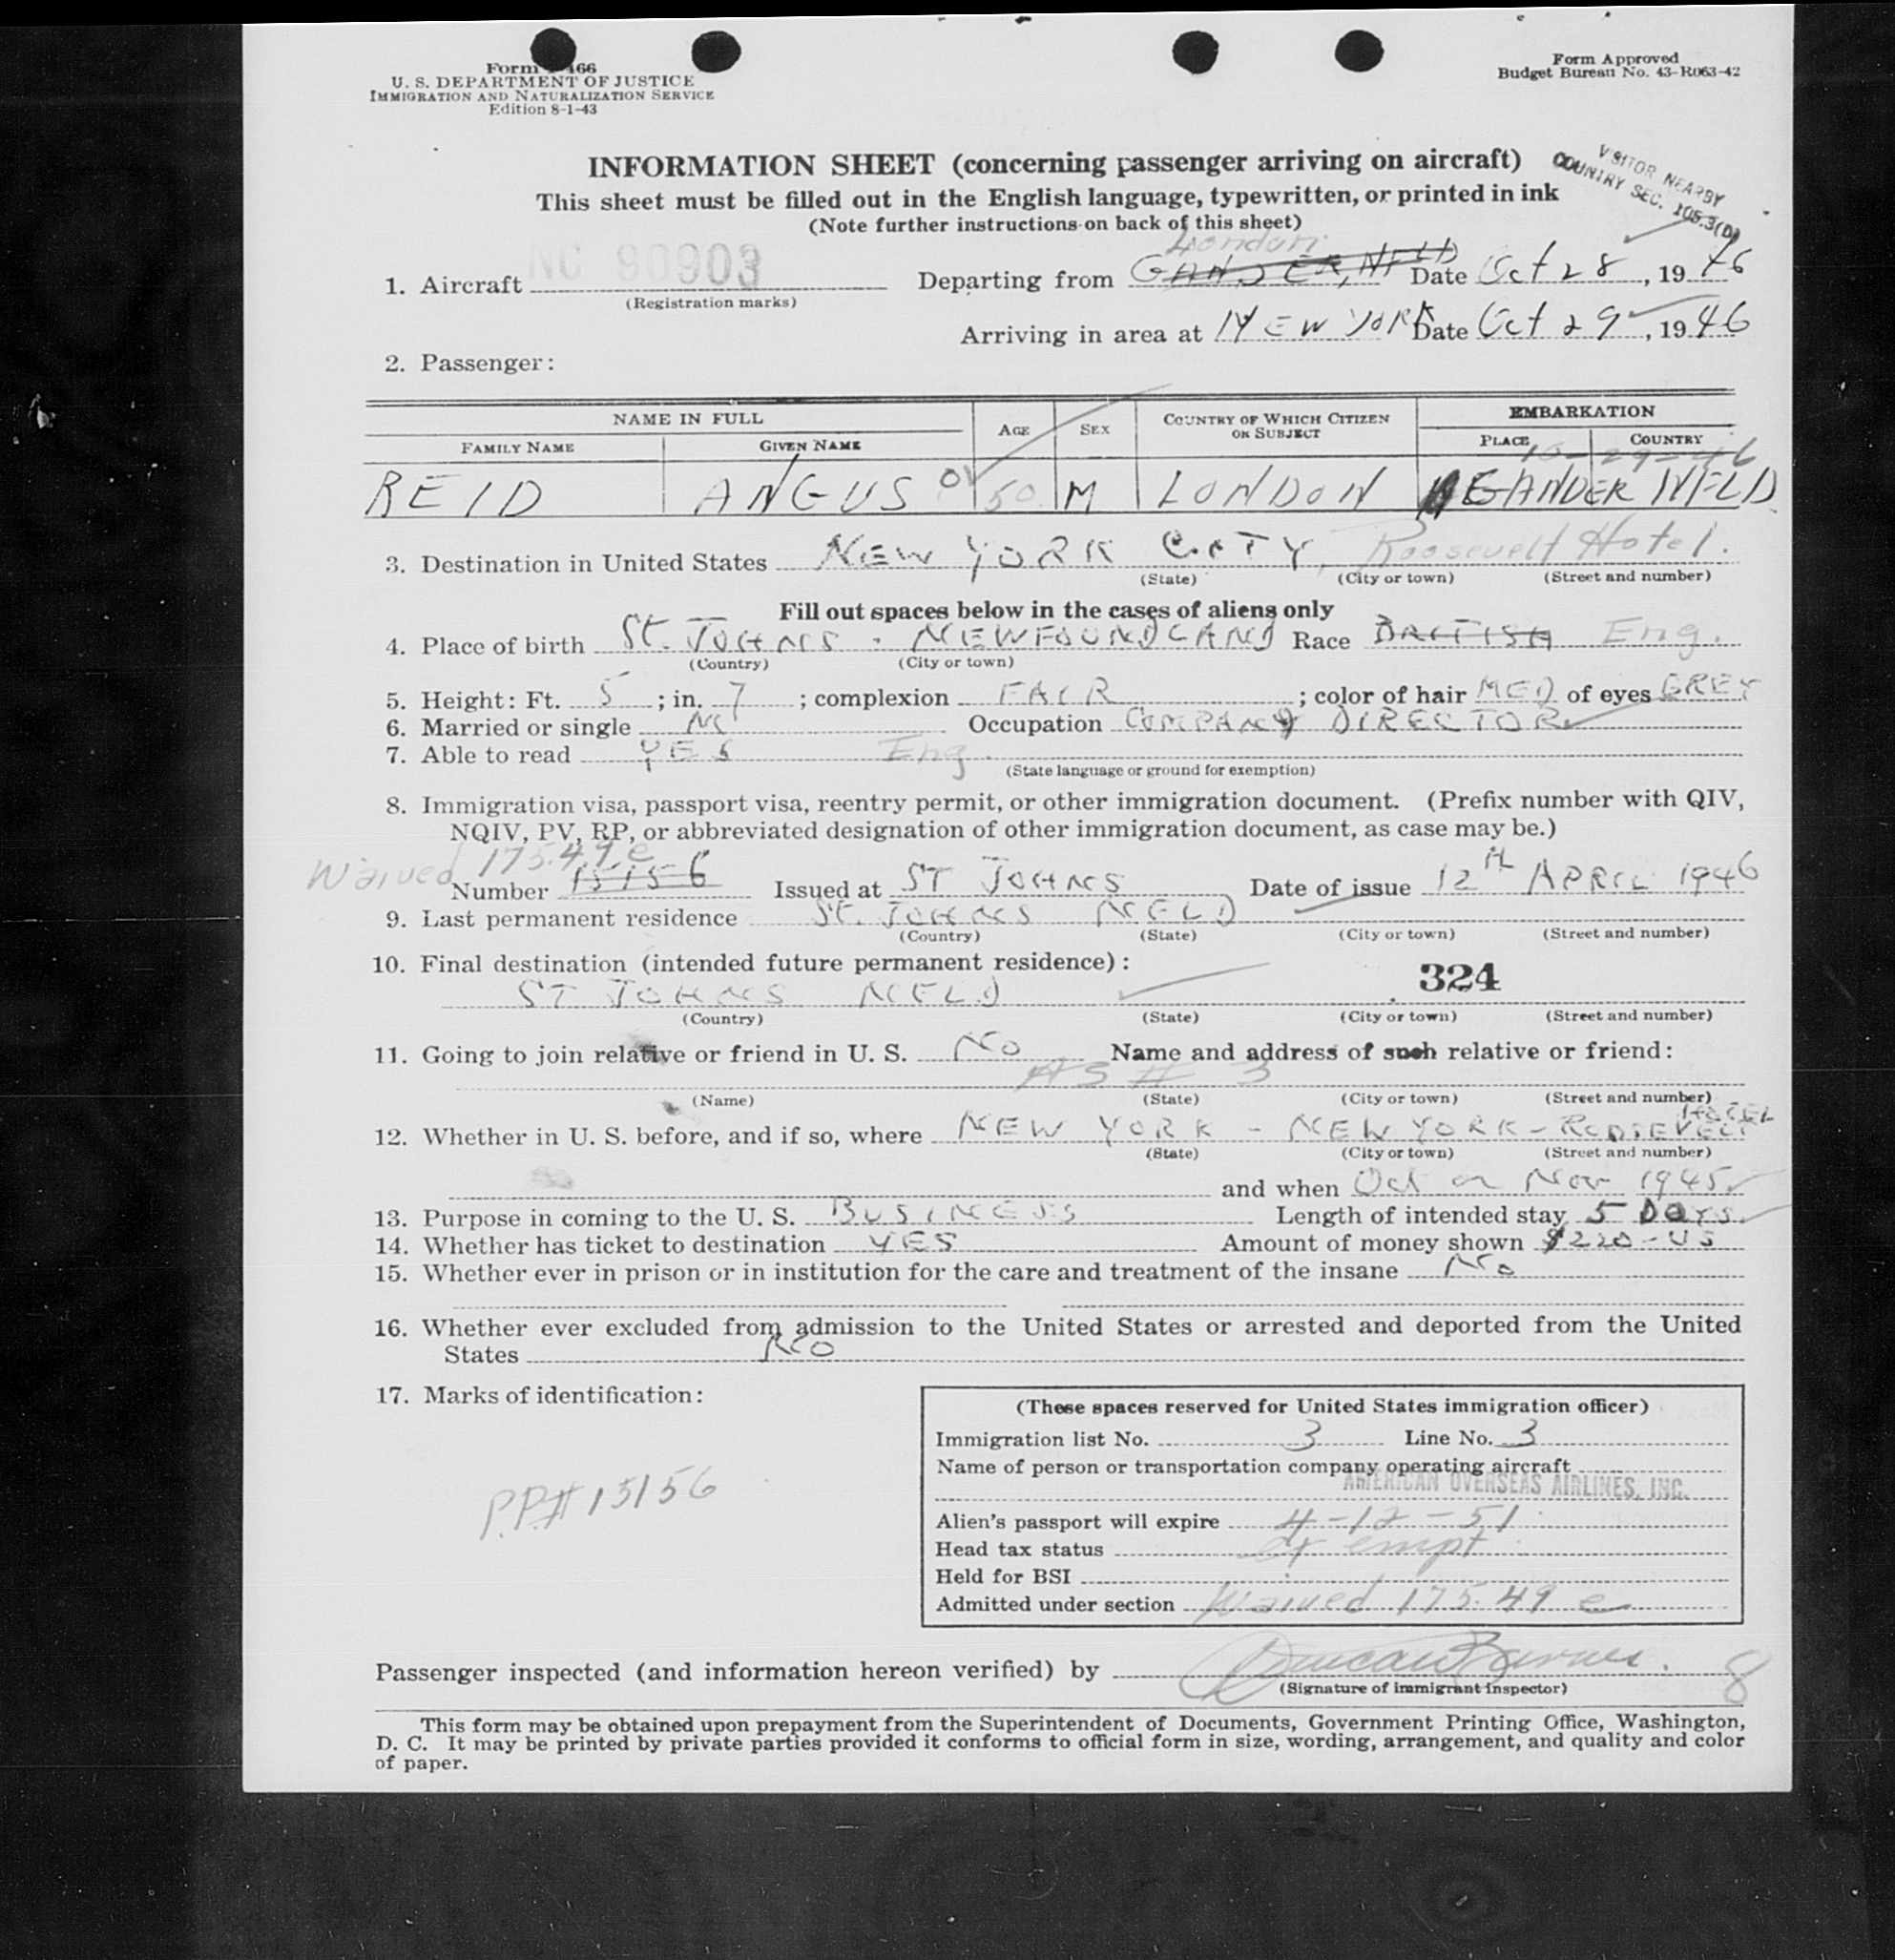 Form 466
U. S. DEPARTMENT OF JUSTICE
IMMIGRATION AND NATURALIZATION SERVICE
Edition 8-1-43
Form Approved
Budget Bureau No. 43-R063-42
INFORMATION SHEET (concerning passenger arriving on aircraft)
VISITOR NEARBY
COUNTRY SEC. 105.3(D)
This sheet must be filled out in the English language, typewritten, or printed in ink
(Note further instructions on back of this sheet)
London
1. Aircraft NC 90903 Departing from GANDER, NFLD Date Oct 28, 1946
(Registration marks)
Arriving in area at NEW YORK Date Oct 29, 1946
2. Passenger:
NAME IN FULL AGE SEX COUNTRY OF WHICH CITIZEN OR SUBJECT EMBARKATION
FAMILY NAME GIVEN NAME PLACE COUNTRY
10-29-46
REID ANGUS 50 M LONDON GANDER NFLD
3. Destination in United States NEW YORK CITY, Roosevelt Hotel.
(State) (City or town) (Street and number)
Fill out spaces below in the cases of aliens only
4. Place of birth St. JOHNS - NEWFOUNDLAND Race BRITISH Eng.
(Country) (City or town)
5. Height: Ft. 5; in. 7; complexion FAIR; color of hair MED of eyes GREY
6. Married or single M Occupation COMPANY DIRECTOR
7. Able to read YES Eng.
(State language or ground for exemption)
8. Immigration visa, passport visa, reentry permit, or other immigration document. (Prefix number with QIV,
NQIV, PV, RP, or abbreviated designation of other immigration document, as case may be.)
Waived 175.49 e
Number 15156 Issued at ST JOHNS Date of issue 12th APRIL 1946
9. Last permanent residence St. JOHNS NFLD
(Country) (State) (City or town) (Street and number)
10. Final destination (intended future permanent residence):
324
ST JOHNS NFLD
(Country) (State) (City or town) (Street and number)
11. Going to join relative or friend in U. S. No Name and address of such relative or friend:
AS # 3
(Name) (State) (City or town) (Street and number)
12. Whether in U. S. before, and if so, where NEW YORK - NEW YORK - ROOSEVELT HOTEL
(State) (City or town) (Street and number)
and when Oct or Nov 1945
13. Purpose in coming to the U. S. BUSINESS Length of intended stay 5 DAYS.
14. Whether has ticket to destination YES Amount of money shown $220-US
15. Whether ever in prison or in institution for the care and treatment of the insane No
16. Whether ever excluded from admission to the United States or arrested and deported from the United
States No
17. Marks of identification:
P.P.# 15156
(These spaces reserved for United States immigration officer)
Immigration list No. 3 Line No. 3
Name of person or transportation company operating aircraft
AMERICAN OVERSEAS AIRLINES, INC.
Alien's passport will expire 4-12-51
Head tax status Exempt
Held for BSI
Admitted under section Waived 175.49 e
Passenger inspected (and information hereon verified) by Duncan Barnes. 8
(Signature of immigrant inspector)
This form may be obtained upon prepayment from the Superintendent of Documents, Government Printing Office, Washington,
D. C. It may be printed by private parties provided it conforms to official form in size, wording, arrangement, and quality and color
of paper.